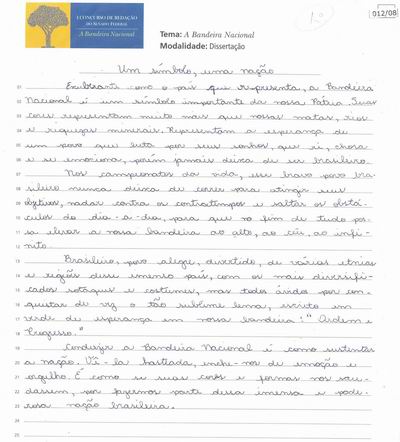 I CONCURSO DE REDAÇÃO
DO SENADO FEDERAL
A Bandeira Nacional
Tema: A Bandeira Nacional
Modalidade: Dissertação
1º
012/08
Um símbolo, uma nação
01 Exuberante como o país que representa, a Bandeira
02 Nacional é um símbolo importante da nossa Pátria. Suas
03 cores representam muito mais que nossas matas, rios
04 e riquezas minerais. Representam a esperança de
05 um povo que luta por seus sonhos, que ri, chora
06 e se emociona, porém jamais deixa de ser brasileiro.
07 Nos campeonatos da vida, esse bravo povo bra-
08 sileiro nunca deixa de correr para atingir seus
09 objetivos, nadar contra os contratempos e saltar os obstá-
10 culos do dia-a-dia, para que no fim de tudo pos-
11 sa elevar a nossa bandeira ao alto, ao céu, ao infi-
12 nito.
13 Brasileiro, povo alegre, divertido, de várias etnias
14 e regiões desse imenso país, com os mais diversifi-
15 cados sotaques e costumes, mas todos unidos por con-
16 quistar de vez o tão sublime lema, escrito em
17 verde de esperança em nossa bandeira: "Ordem e
18 Progresso."
19 Conduzir a Bandeira Nacional é como sustentar
20 a nação. Vê-la hasteada, enche-nos de emoção e
21 orgulho. É como se suas cores e formas nos sau-
22 dassem, por fazermos parte dessa imensa e pode-
23 rosa nação brasileira.
24
25